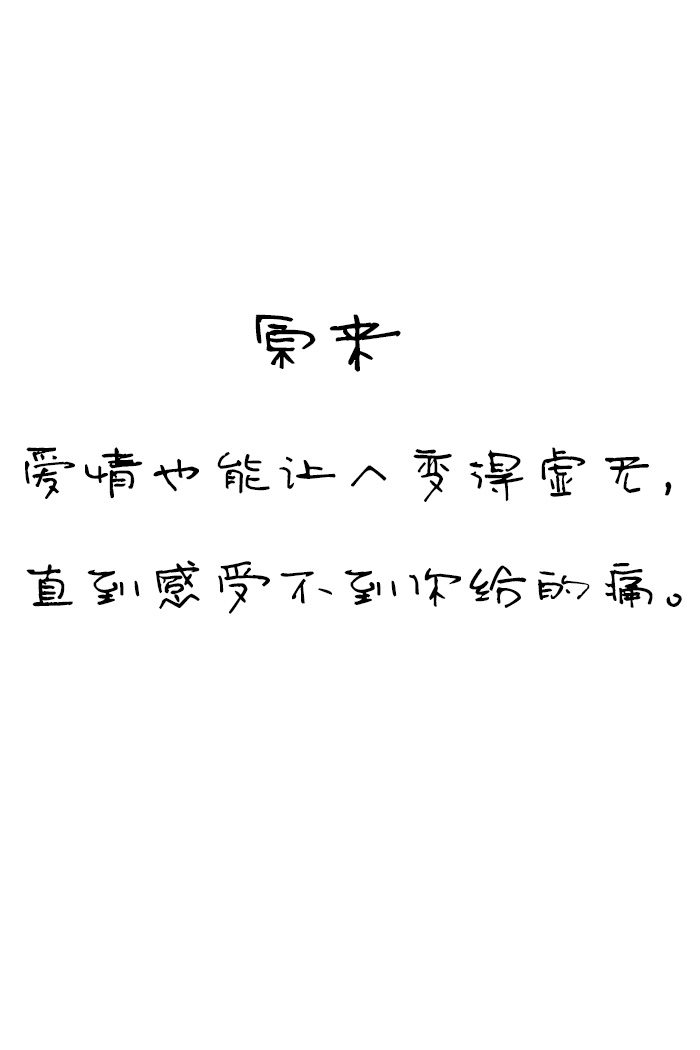 原来
爱情也能让人变得虚无，
直到感受不到你给的痛。